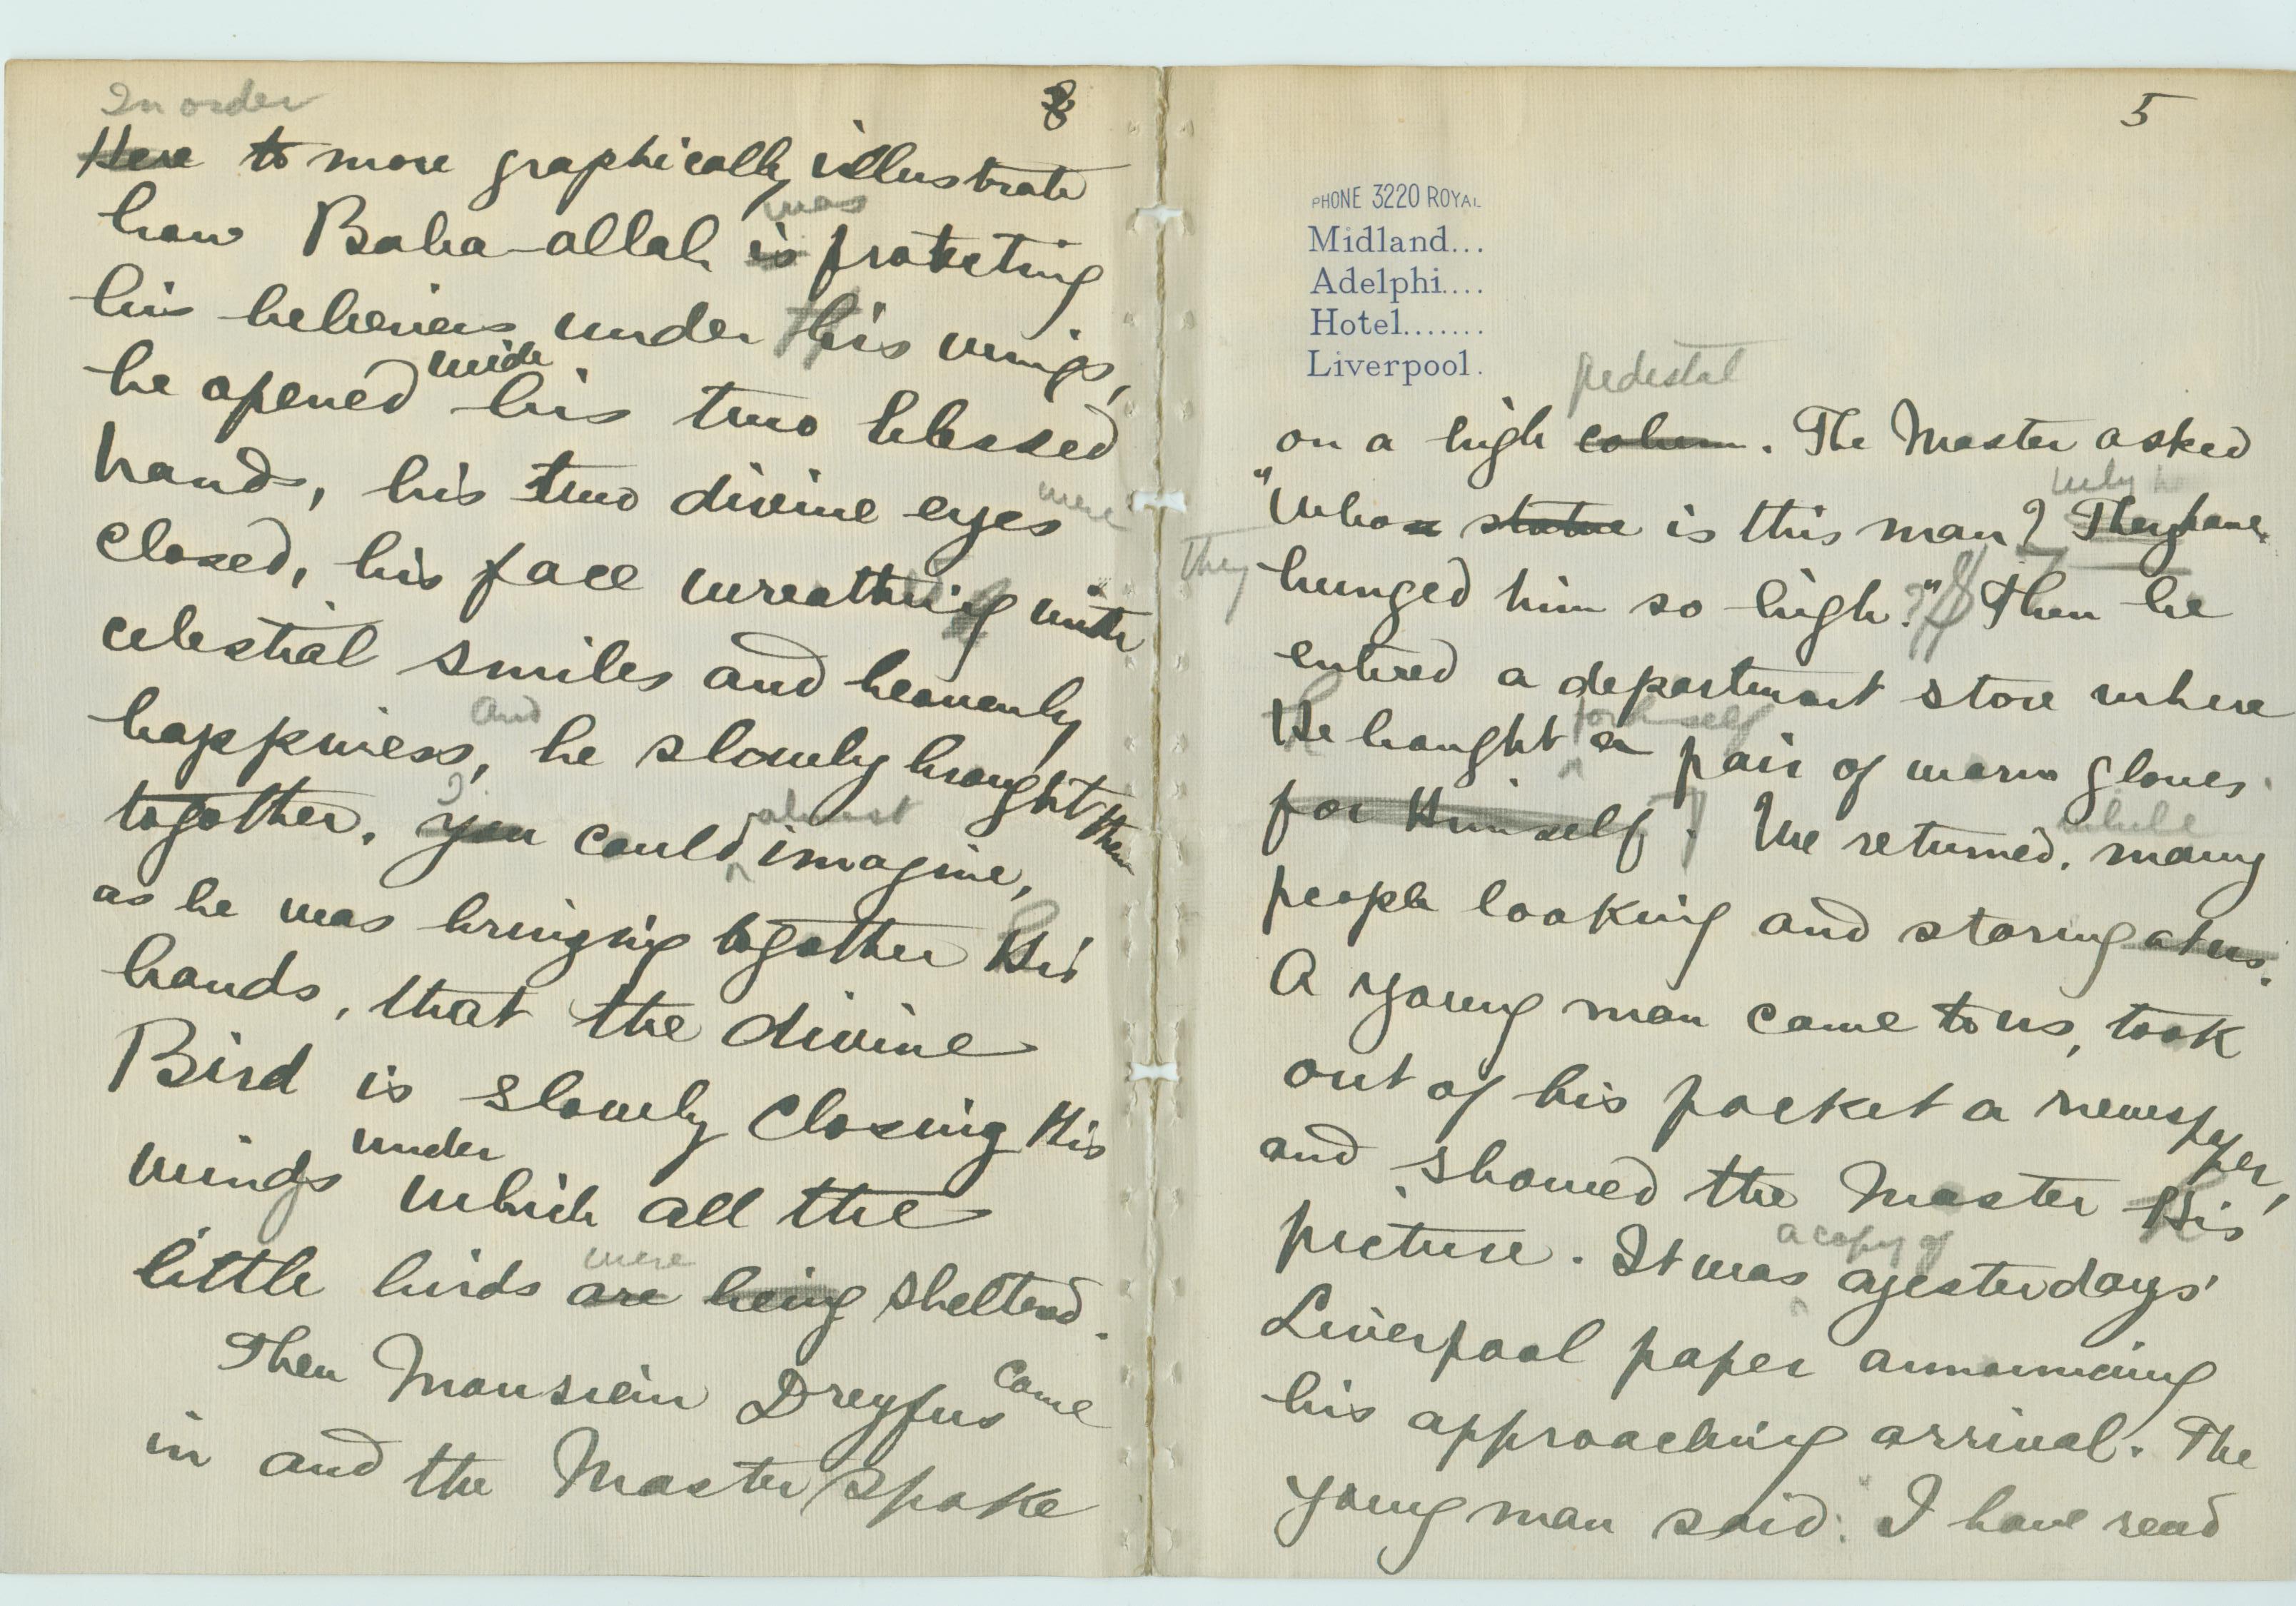 In order
8
Here to more graphically illustrate
was
how Baha-ollah is protecting
his believers under His wings,
wide
he opened his two blessed
hands, his two divine eyes
were
closed, his face wreathing with
celestial smiles and heavenly
and
happiness, he slowly brought them
together. you could imagine,
almost
as he was bringing together His
hands, that the divine
Bird is slowly closing His
under
wings which all the
were
little birds are being sheltered.
Then Monsieur Dreyfus came
in and the Master spoke
5
PHONE 3220 ROYAL
Midland...
Adelphi....
Hotel.......
Liverpool.
pedestal
on a high colum. The Master asked
why
"Who statue is this man? They have
they
hunged him so high." Then he
entered a department store where
for himself
He bought a pair of warm gloves
for Himself. We returned. many
while
people looking and staring at us.
A young man came to us, took
out of his pocket a newspaper,
and showed the Master His
picture. It was a yesterdays'
a copy of
Liverpool paper announcing
his approaching arrival. The
young man said: I have read